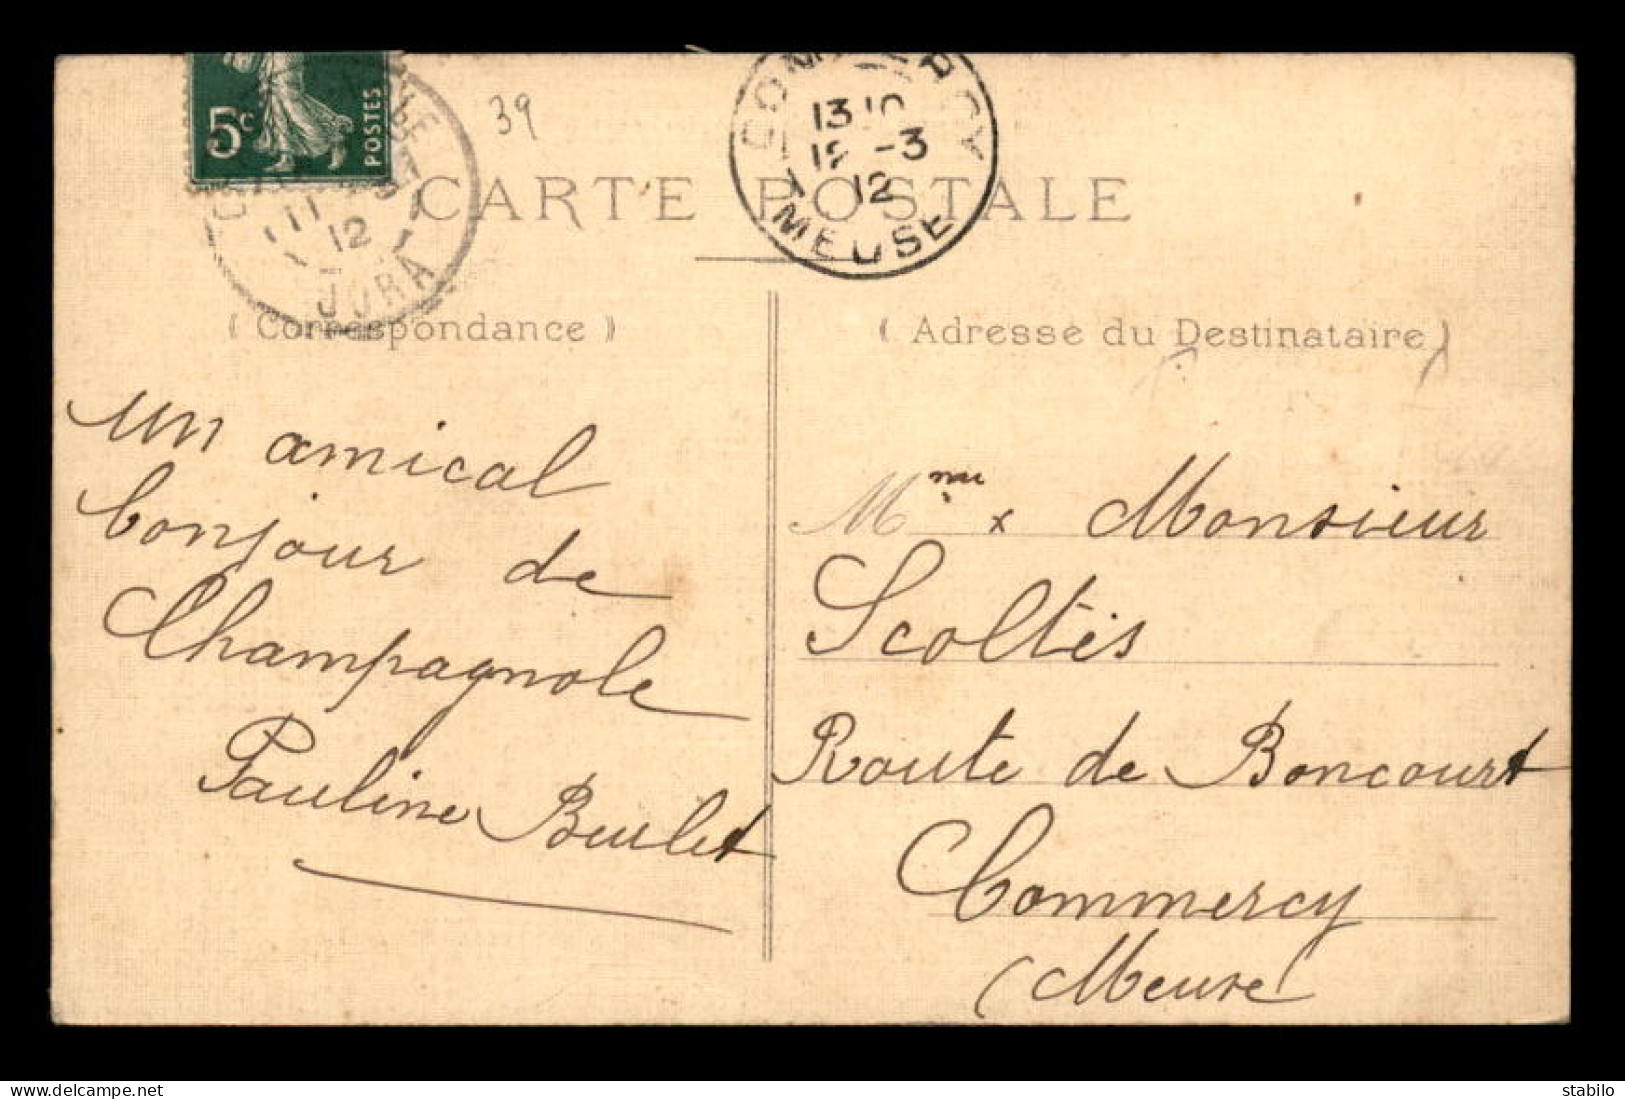 5c
POSTES
JURA
11
12
39
COMMERCY
13 10
12 -3
12
MEUSE
CARTE POSTALE
( Correspondance )
( Adresse du Destinataire )
un amical
bonjour de
Champagnole
Pauline Beulet
Mme x Monsieur
Scoltès
Route de Boncourt
Commercy
(Meuse
www.delcampe.net
stabilo